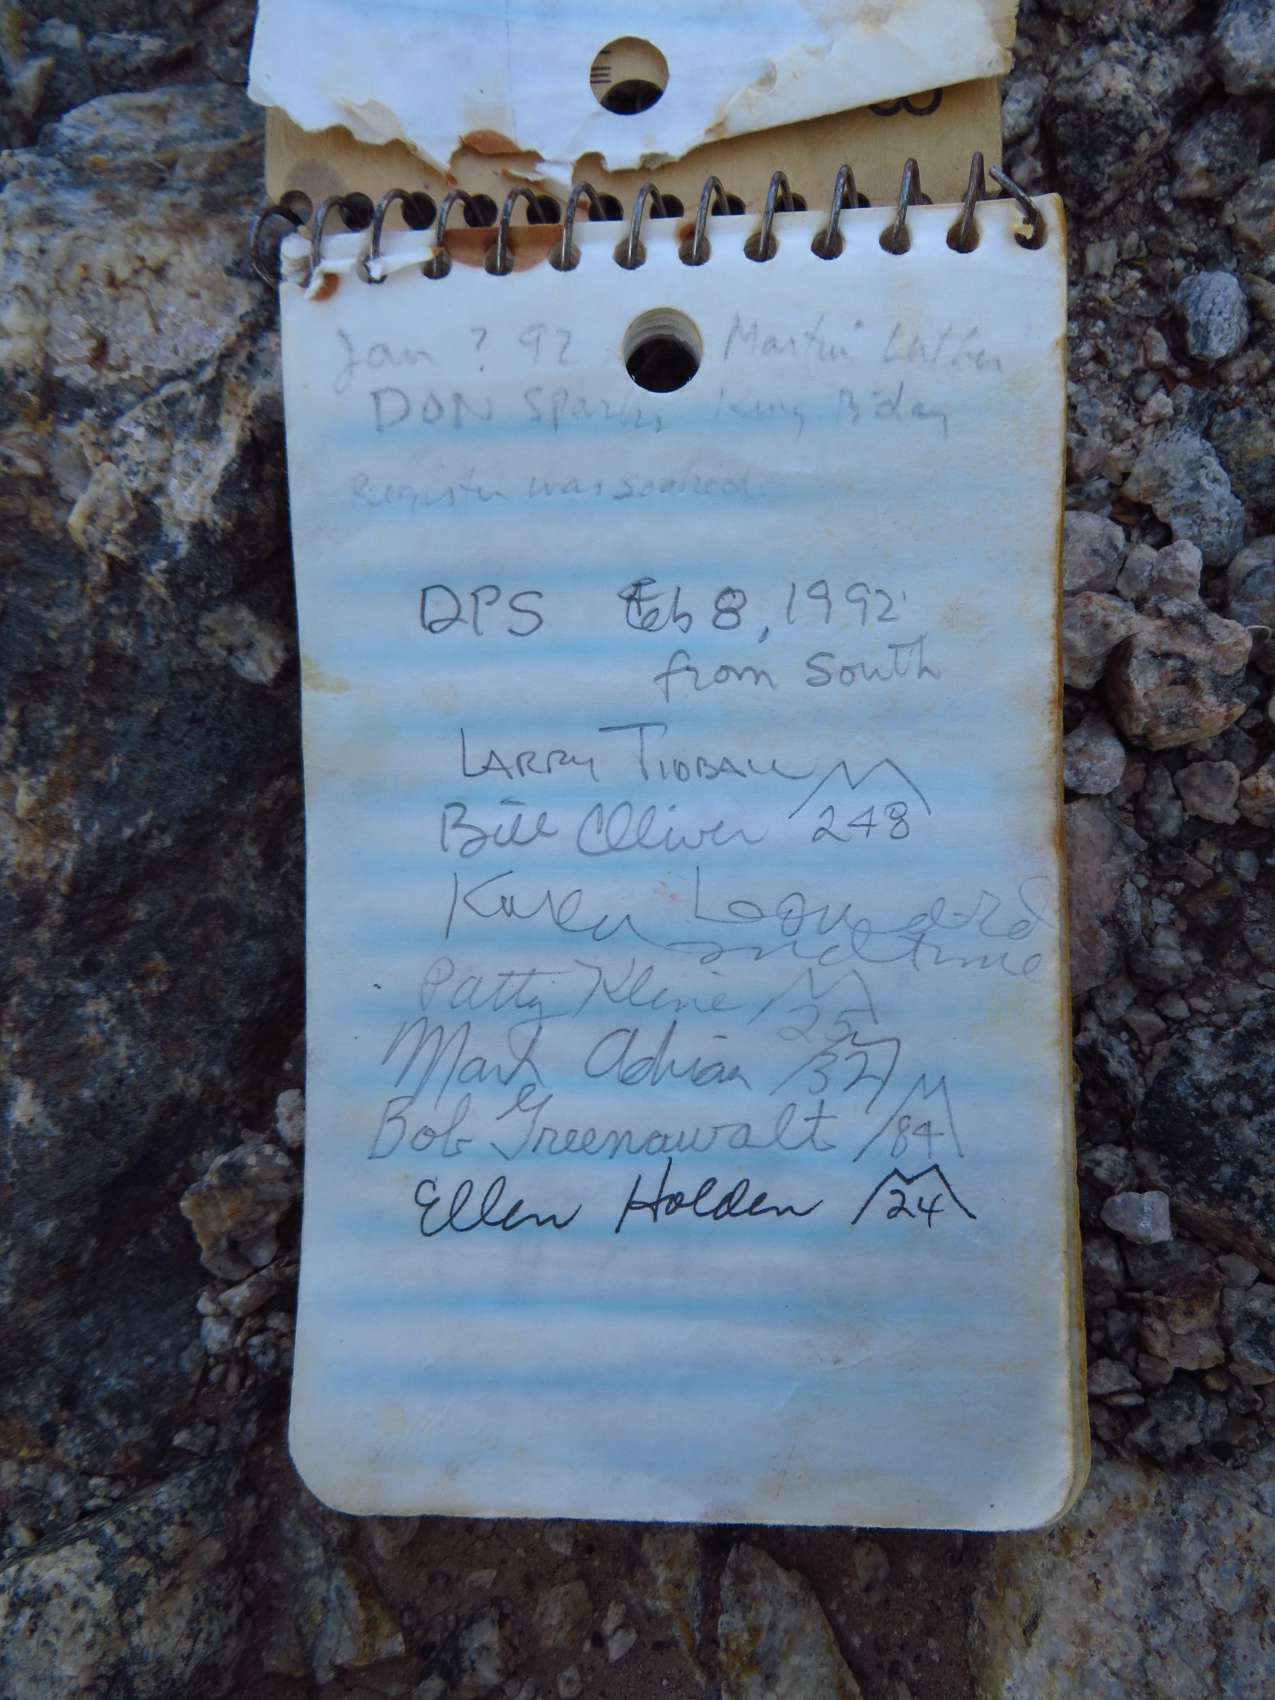 Jan ? 92 Martin Luther
DON Sparks King B'day
Register was soaked.
DPS Feb 8, 1992
from South
LARRY TIDBALL
Bill Oliver 248
Karen Leonard
2nd time
Patty Kline 25
Mark Adrian 32
Bob Greenawalt 84
Ellen Holden 24